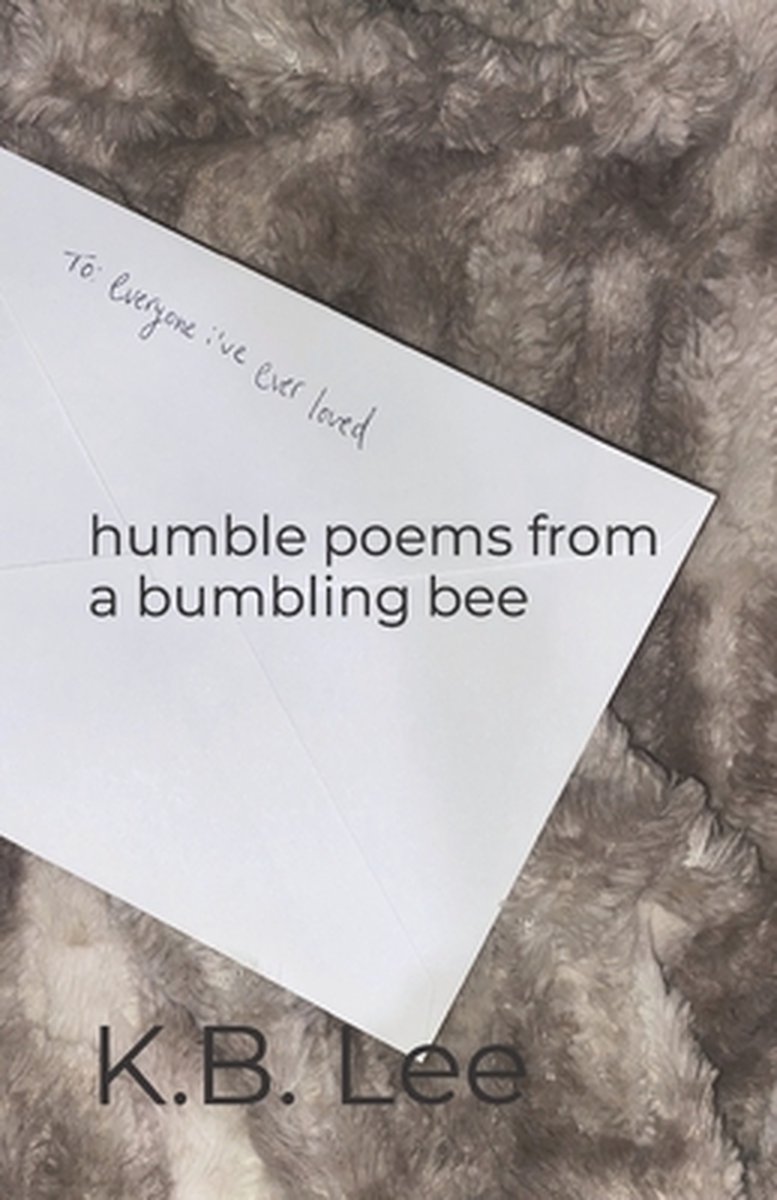 To: everyone i've ever loved
humble poems from
a bumbling bee
K.B. Lee